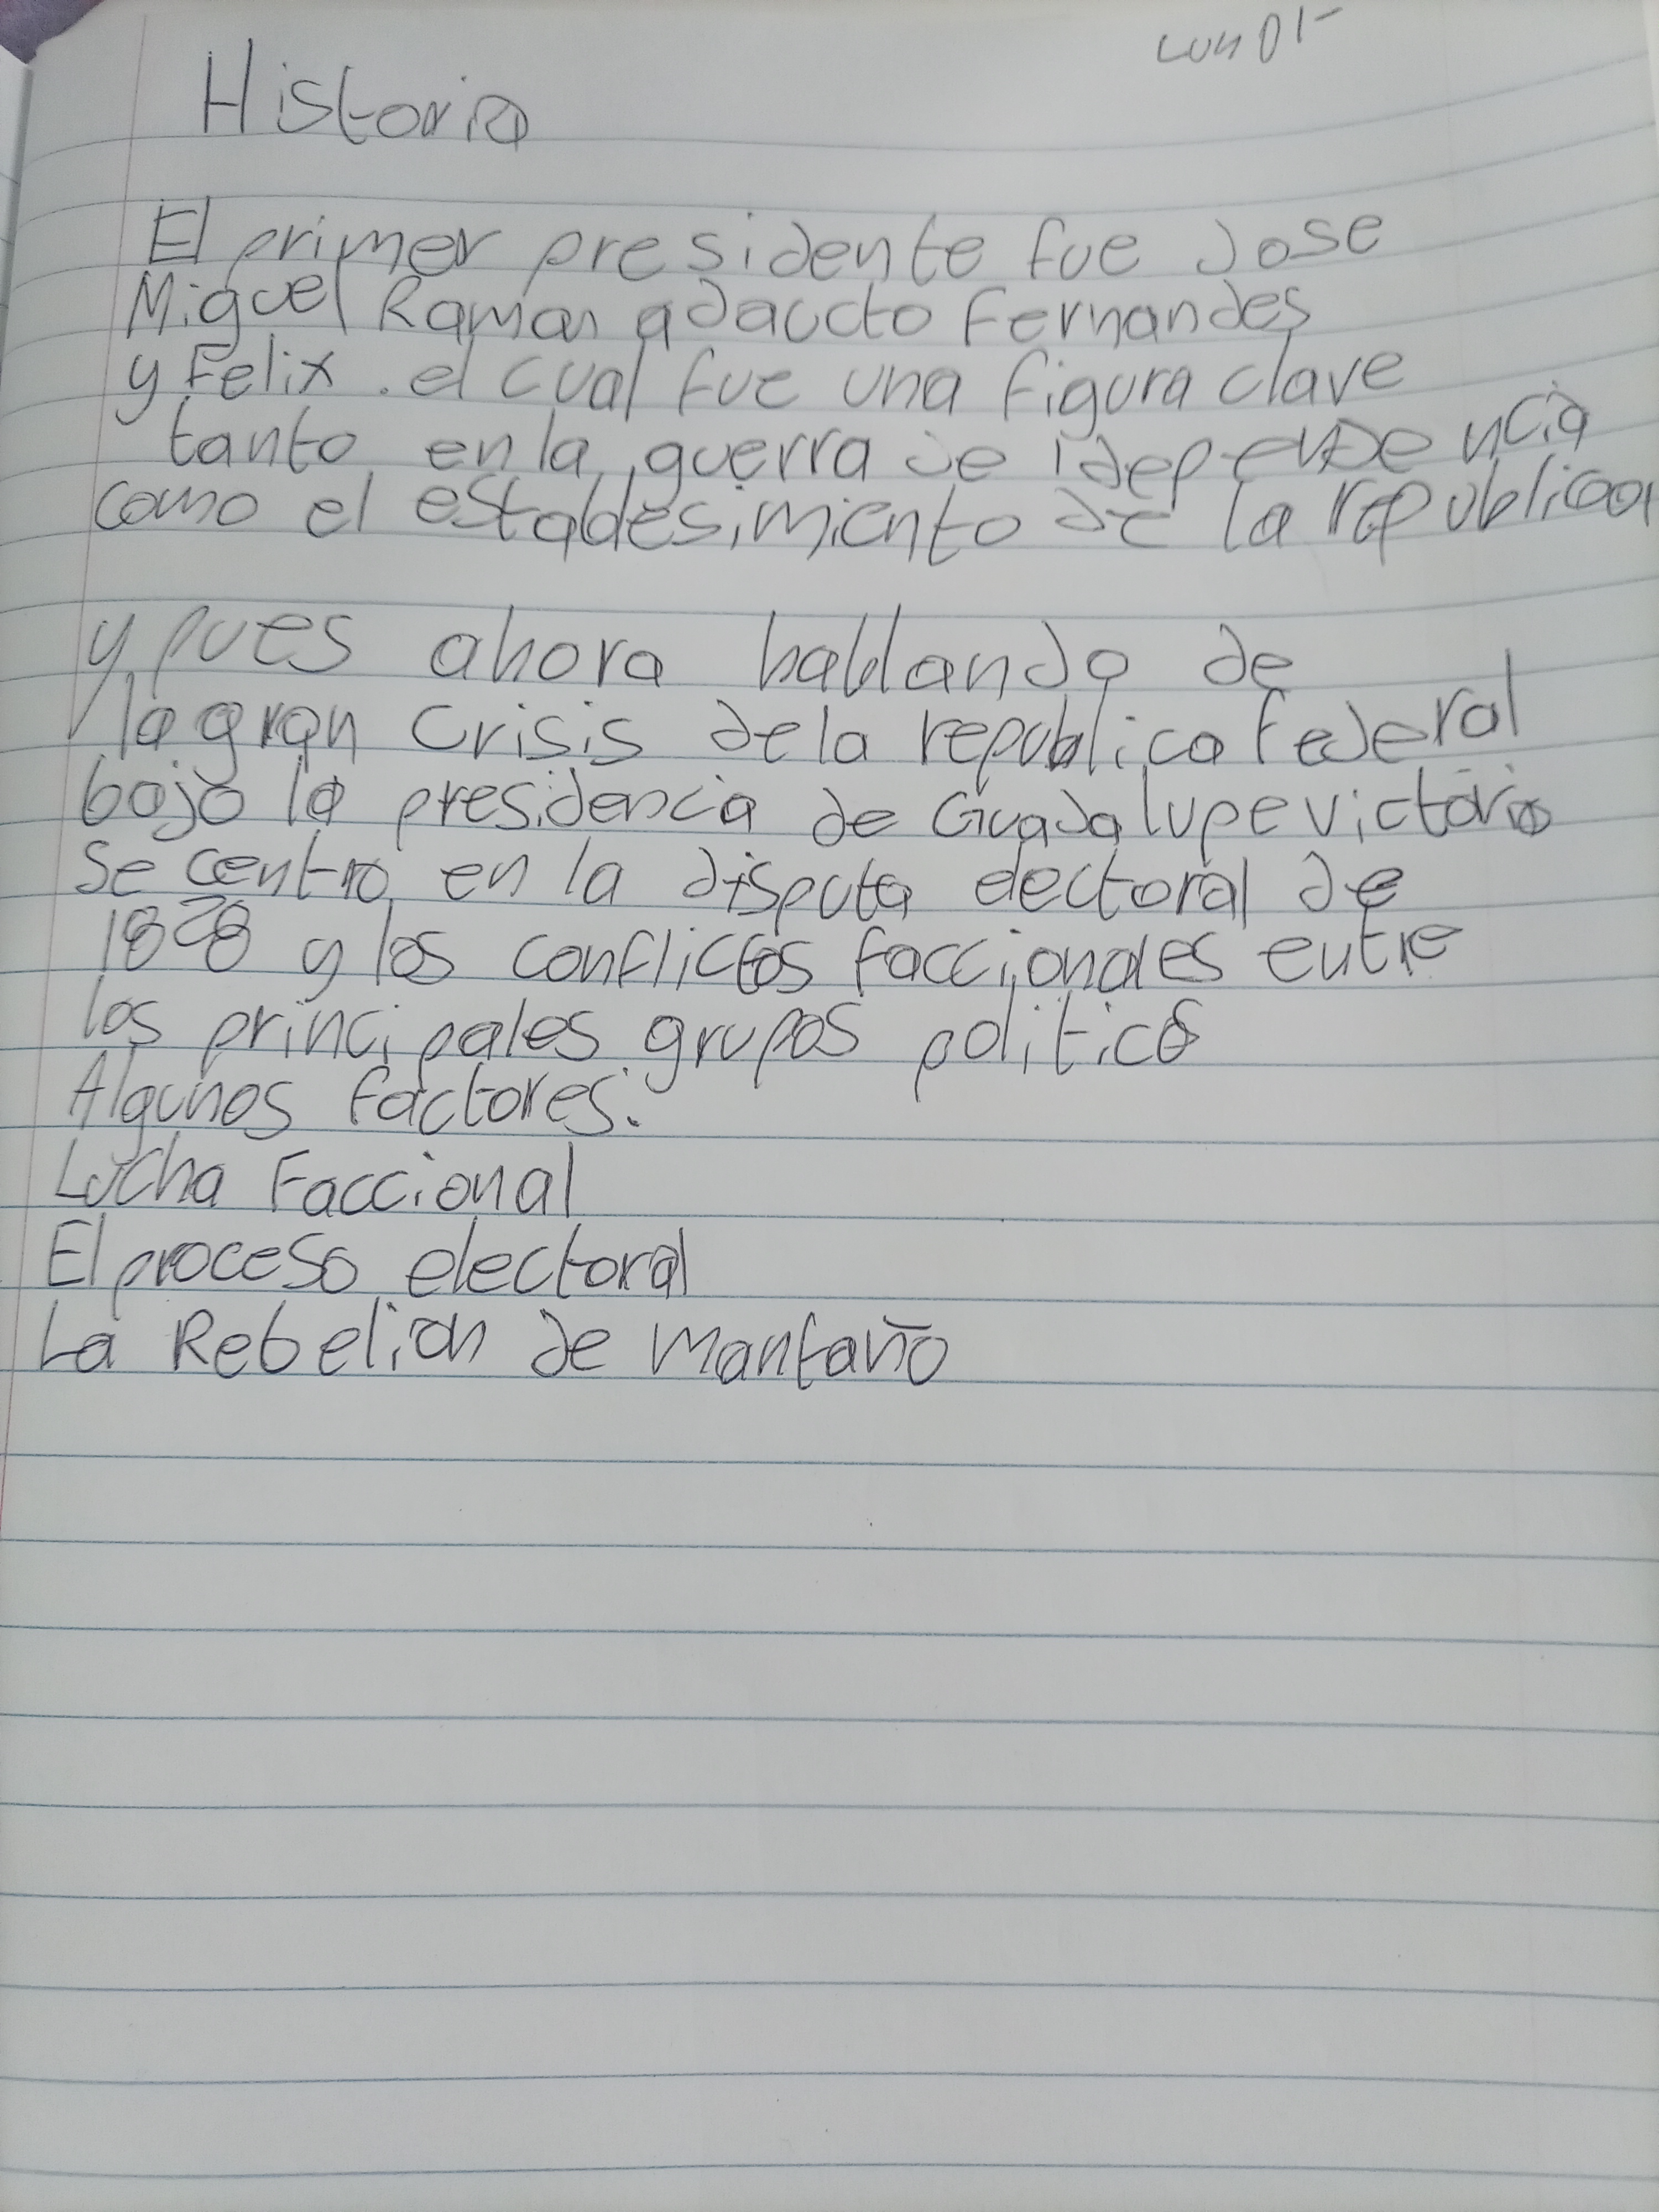 Historia
El primer presidente fue Jose
Miguel Ramon adaucto Fernandes
y Felix. el cual fue una figura clave
tanto en la guerra de idependencia
como el establesimiento de la republica
y pues ahora hablando de
la gran crisis de la republica federal
bajo la presidencia de Guadalupe victoria
Se centro en la disputa electoral de
1828 y los conflictos faccionales entre
los principales grupos politicos
Algunos factores:
Lucha Faccional
El proceso electoral
La Rebelion de Montaño